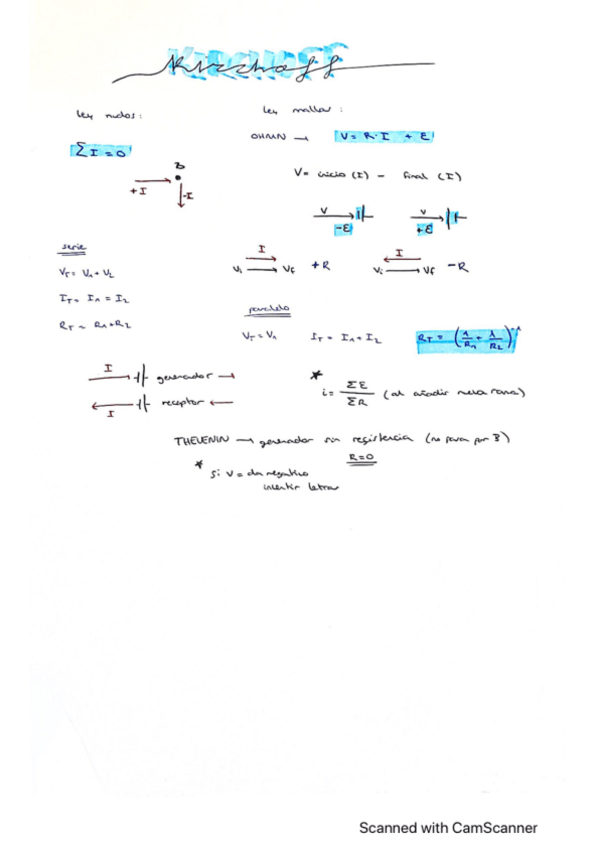 Kirchoff
Ley nudos:
Ley mallas:
OHMN → V = R·I + E
ΣI = 0
B
+I
-I
V = inicio (I) - final (I)
V
-E
V
+E
serie
VT = V1 + V2
IT = I1 = I2
RT = R1+R2
I
Vi → Vf +R
I
Vi ← Vf -R
paralelo
VT = V1
IT = I1 + I2
RT = (1/R1 + 1/R2)^-1
I
generador →
I
receptor ←
* i = ΣE/ΣR (al añadir nueva rama)
THEVENIN → generador sin resistencia (no pasa por B)
R=0
* Si V = da negativo
invertir letras
Scanned with CamScanner